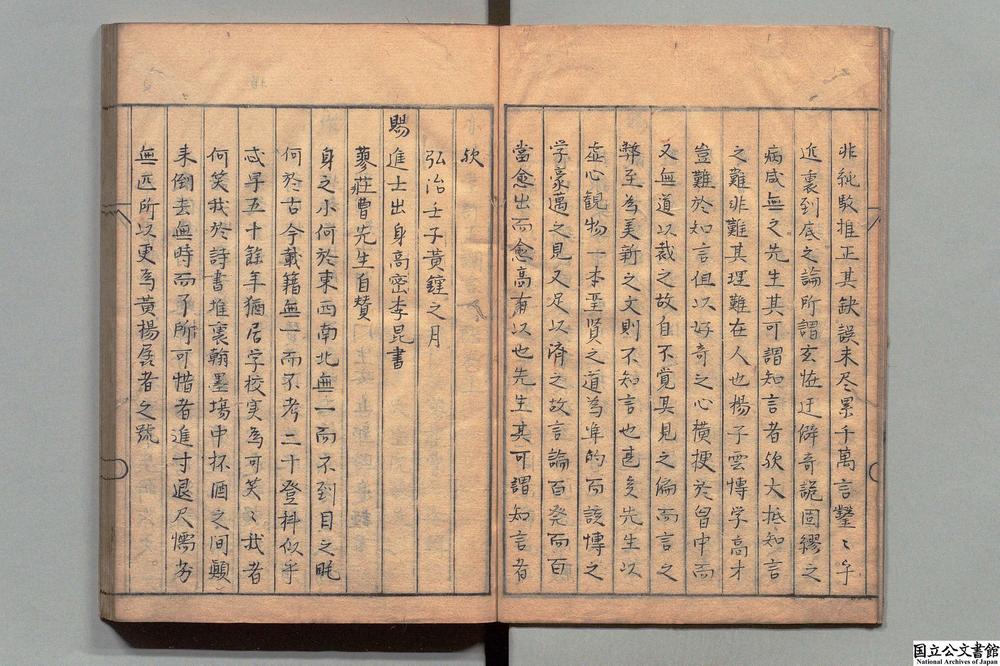 非純駁推正其缺誤未尽累千萬言鑿〻乎
近裏到底之論所謂玄恠迂僻奇詭固繆之
病咸無之先生其可謂知言者欤大抵知言
之難非難其理難在人也楊子雲愽学高才
豈難於知言但以好奇之心横梗於胷中而
又無道以裁之故自不覚其見之偏而言之
弊至為美新之文則不知言也甚矣先生以
虚心観物一本至贤之道為凖的而該愽之
学豪邁之見又足以濟之故言論百発而百
當愈出而愈高有以也先生其可謂知言者
欤
弘治壬子黄鐘之月
賜進士出身高密李昆書
蓼莊曹先生自賛
身之小何於東西南北無一而不到目之眊
何於古今載籍無一而不考二十登科似乎
忒早五十餘年猶居学校実為可笑〻我者
何笑我於詩書堆裏翰墨場中杯酒之间顛
来倒去無時而了所可惜者進寸退尺懦劣
無匹所以更為黄楊居者之號
国立公文書館
National Archives of Japan